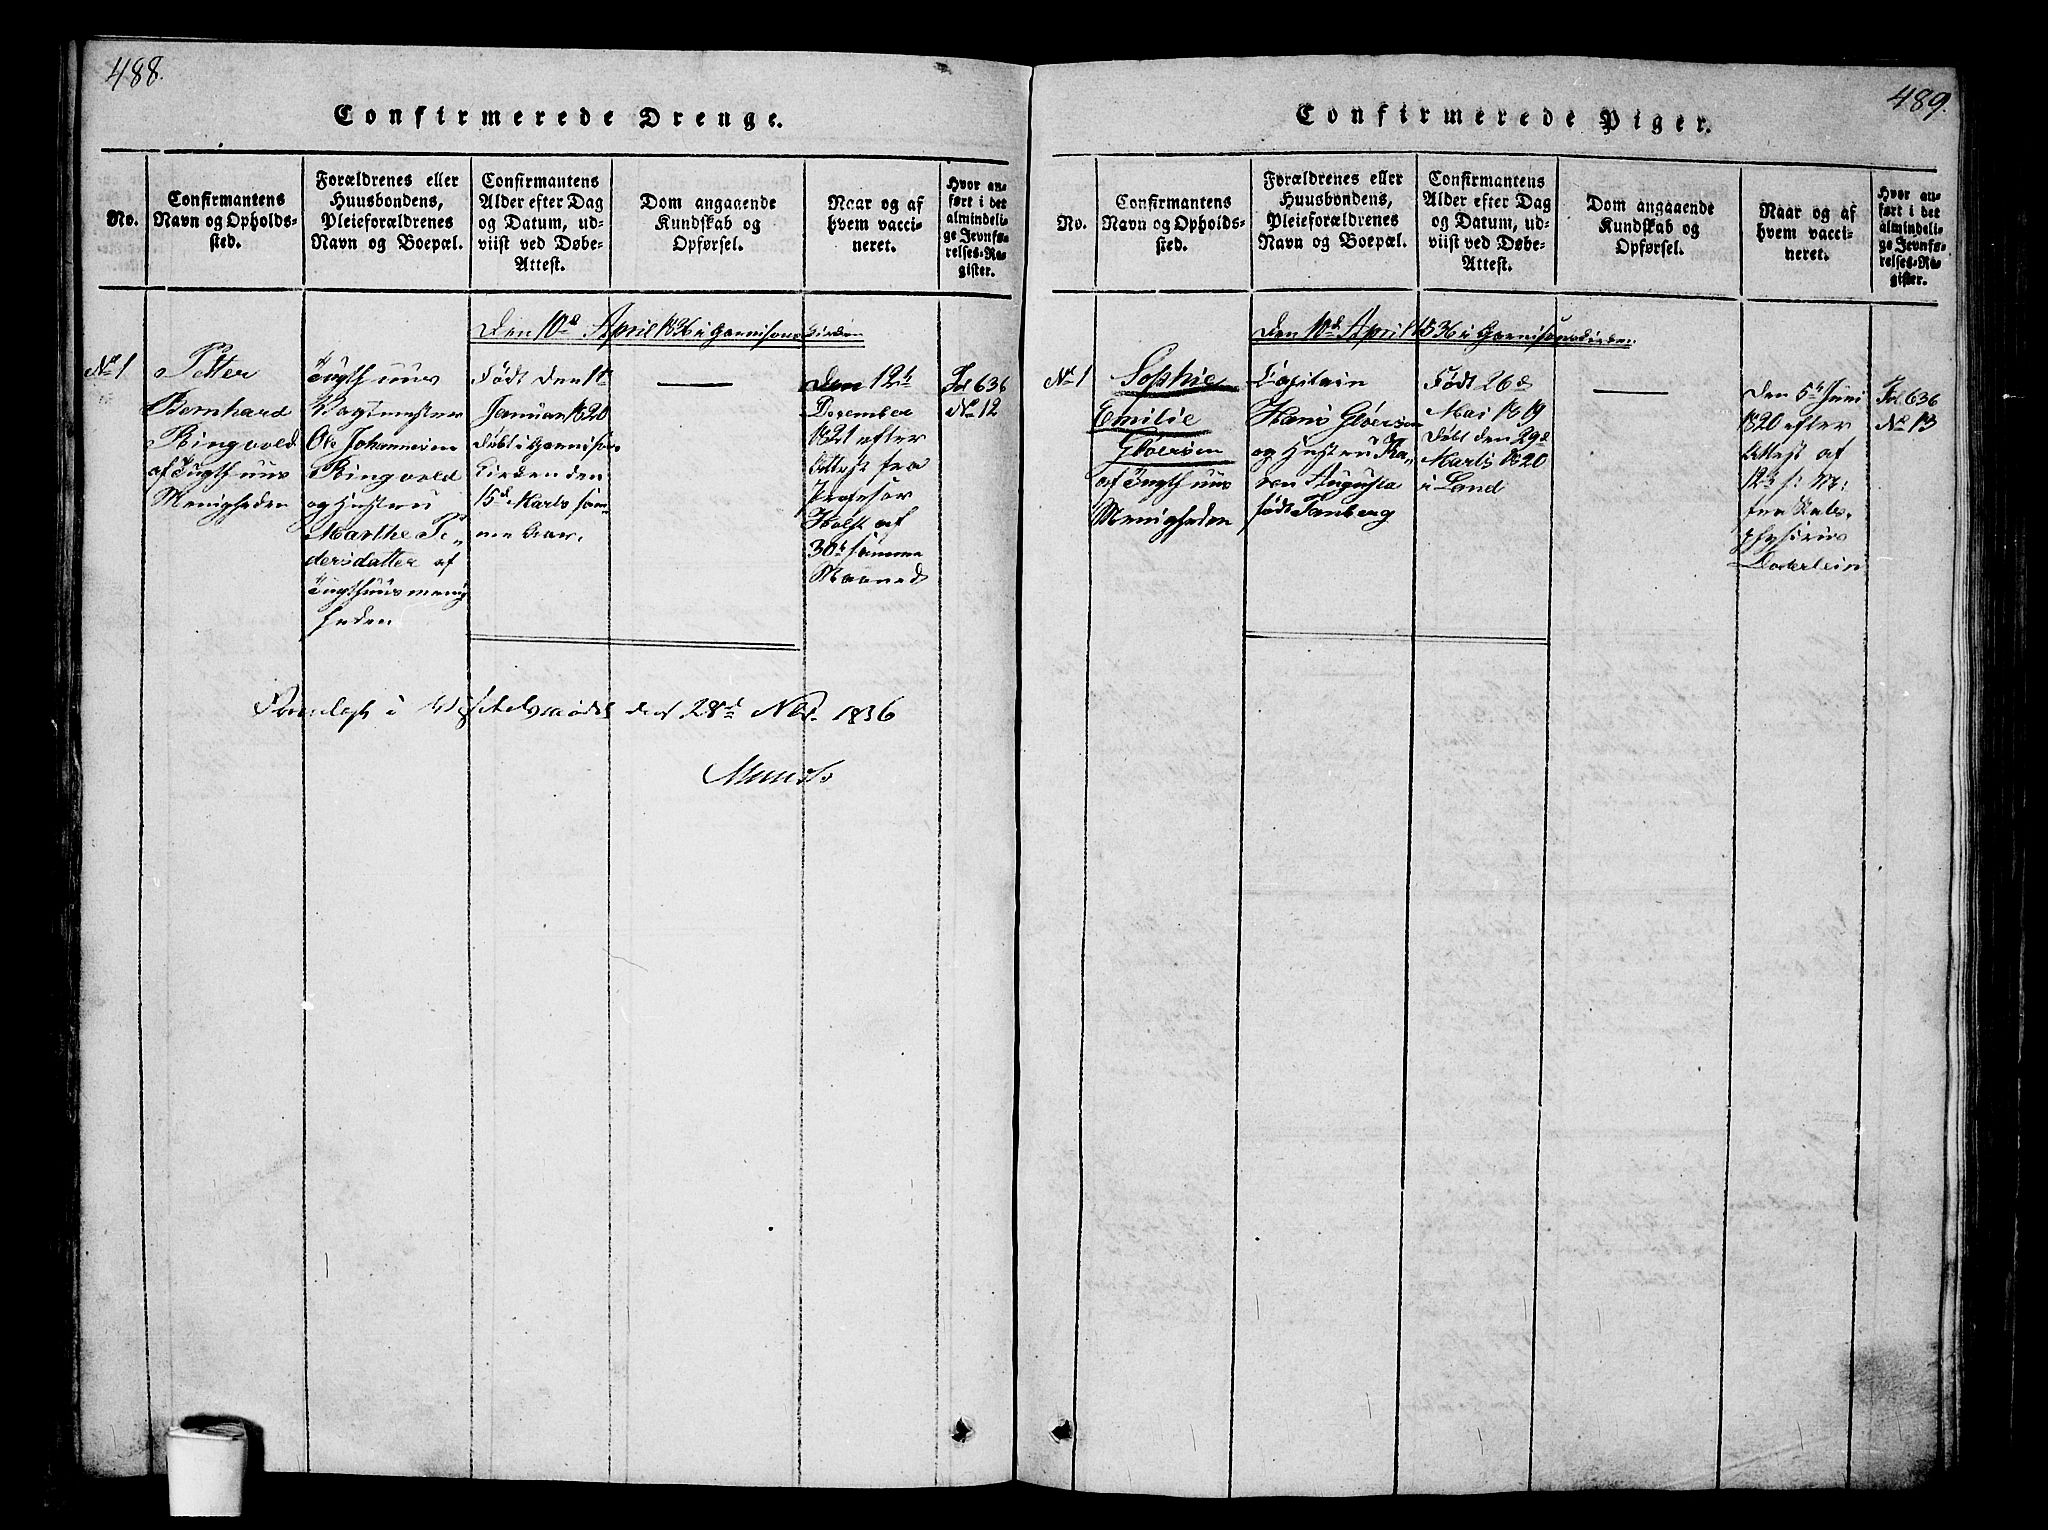 488.
Confirmerede Drenge.
No.
Confirmantens
Navn og Opholds-
sted.
Forældrenes eller
Huusbondens,
Pleieforældrenes
Navn og Boepæl.
Confirmantens
Alder efter Dag
og Datum, ud-
viist ved Døbe-
Attest.
Dom angaaende
Kundskab og
Opførsel.
Naar og af
hvem vacci-
neret.
Hvor an-
ført i det
almindeli-
ge Jevnfø-
relses-Re-
gister.
Den 10d April 1836 i Garnisons Kirken
No 1
Petter
Bernhard
Ringvold
af Tugthuus
Menigheden
Tugthuus
Vagtmester
Ole Johannesen
Ringvold
og Hustru
Marthe Pe-
dersdatter af
Tugthuusmenig
heden
Født den 11t
Januar 1820
Døbt i Garnisons
Kirken den
15d Marts sam-
me Aar.
Den 12t
December
1821 efter
Attest fra
Professor
Holst af
30t samme
Maaned
Fol 636
No 12
Foreviist i den 28d Nov. 1836
Munch
489.
Confirmerede Piger.
No.
Confirmantens
Navn og Opholds-
sted.
Forældrenes eller
Huusbondens,
Pleieforældrenes
Navn og Boepæl.
Confirmantens
Alder efter Dag
og Datum, ud-
viist ved Døbe-
Attest.
Dom angaaende
Kundskab og
Opførsel.
Naar og af
hvem vacci-
neret.
Hvor an-
ført i det
almindeli-
ge Jevnfø-
relses-Re-
gister.
Den 10d April 1836 i Garnisonskirken
No 1
Sophie
Emilie
Gløersen
af Tugthuus
Menigheden
Capitain
Hans Gløersen
og Hustru Ka-
ren Augusta
født Tanberg
Født 26d
Mai 1819
Døbt den 29d
Marts 1820
i Land
Den 5t Juni
1820 efter
Attest af
12t s: M:
fra Stads-
physicus
Doderlein
Fol 636
No 13